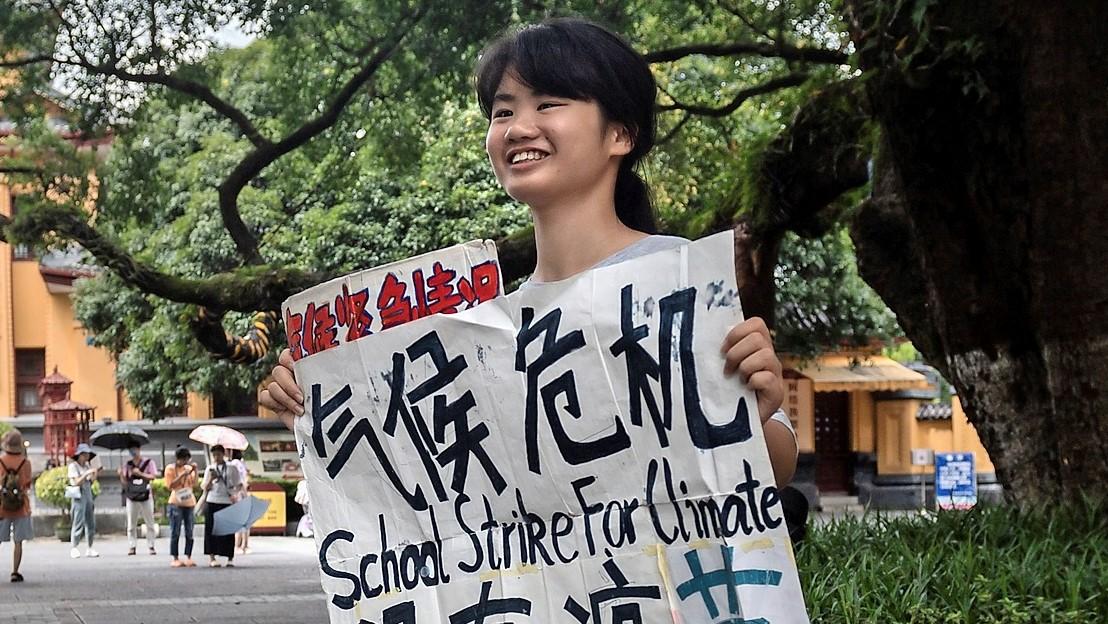 气候紧急情况
气候危机
School Strike For Climate
没有疫苗